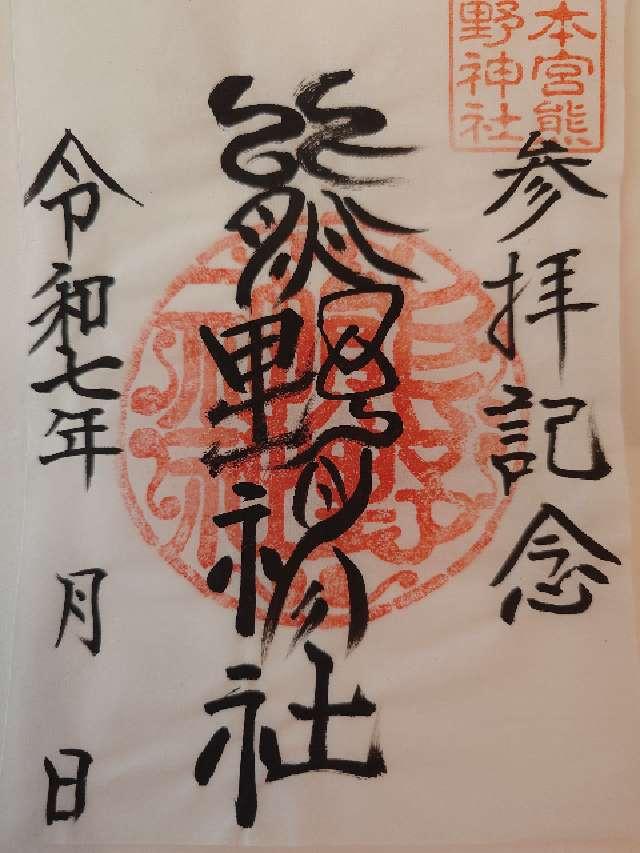 本宮熊
野神社
参拝記念
熊野神社
令和七年 月 日